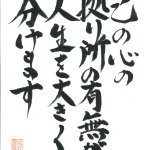 己の心の
拠り所の有無が
人生を大きく
分けます